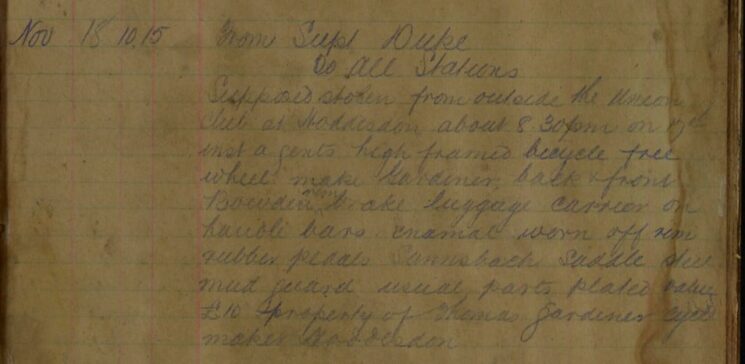 Nov 18 10.15 From Supt Duke
To All Stations
Supposed stolen from outside the Union
Club at Hoddesdon about 8.30pm on 17th
inst a gents high framed bicycle free
wheel make Gardiner, back & front
Bowden rim brake luggage carrier on
handle bars enamal worn off rim
rubber pedals Lannsback saddle steel
mud guard usual parts plated value
£10 property of Thomas Gardener cycle
maker Hoddesdon